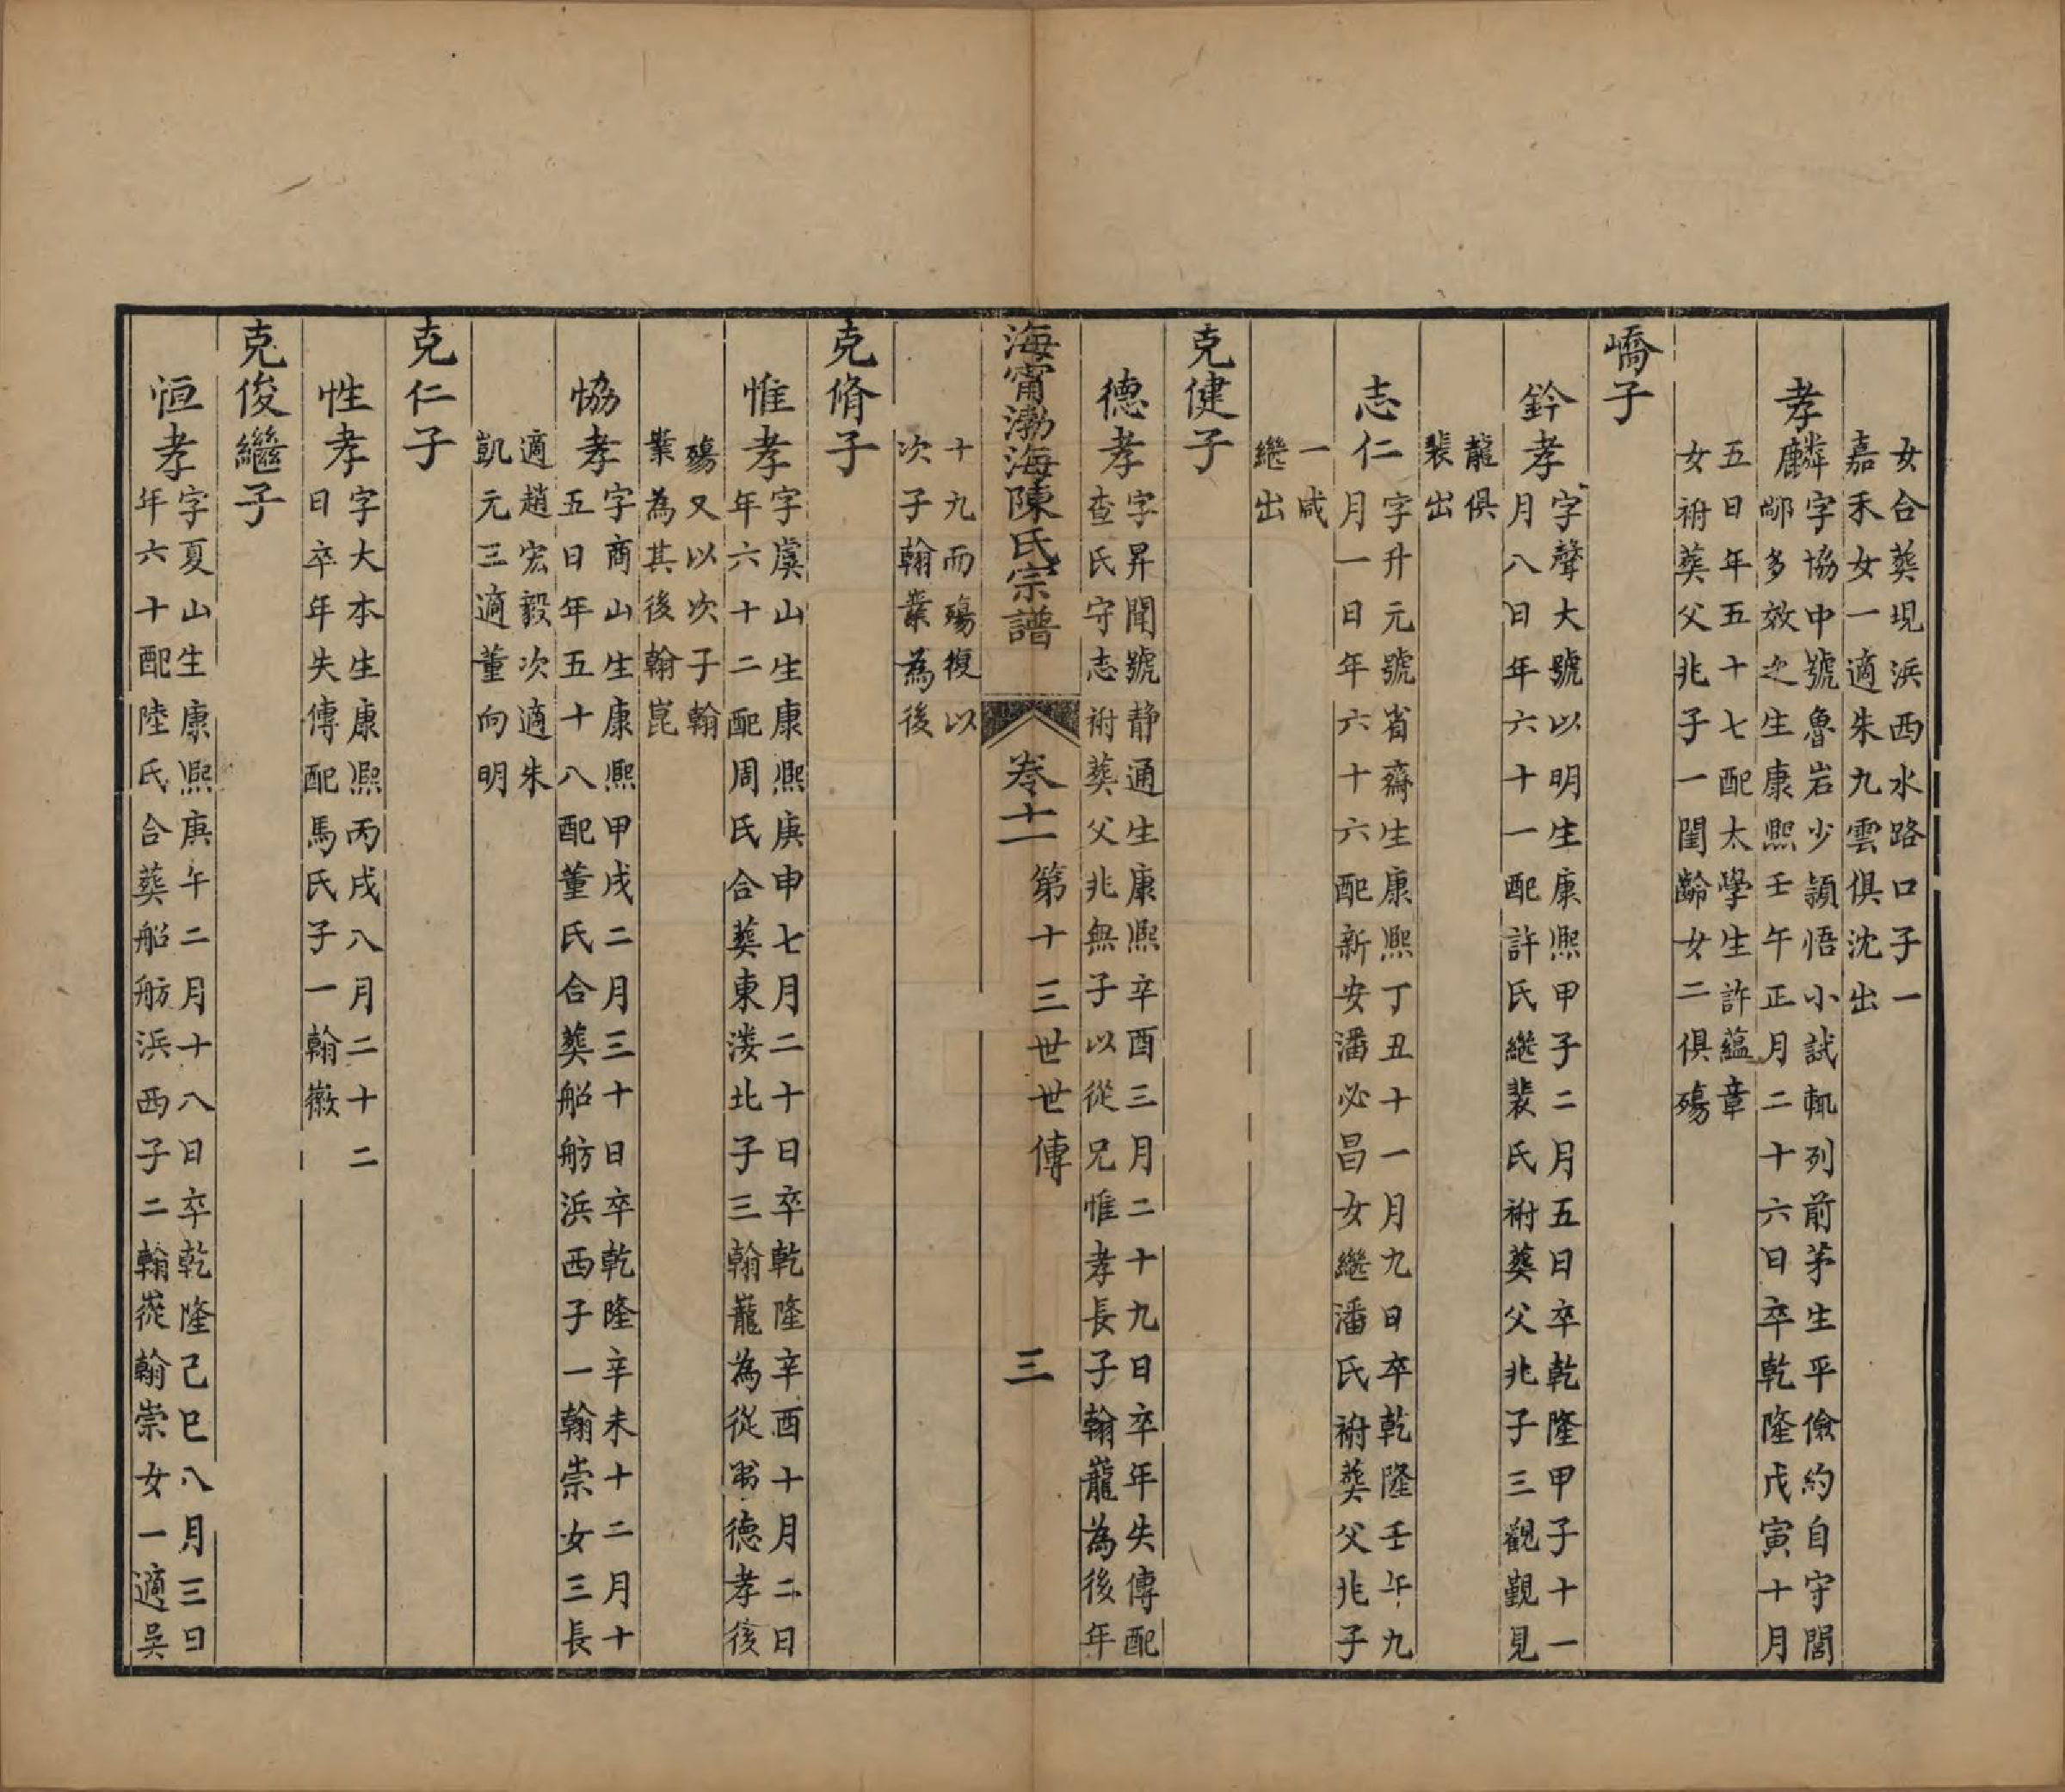 女合葬現浜西水路口子一
嘉禾女一適朱九雲俱沈出
孝麟字協中號魯岩少穎悟小試輒列前茅生平儉約自守閭
鄰多效之生康熙壬午正月二十六日卒乾隆戊寅十月
五日年五十七配太學生許蘊章
女祔葬父兆子一閏齡女二俱殤
嶠子
鈐孝字聲大號以明生康熙甲子二月五日卒乾隆甲子十一
月八日年六十一配許氏繼裴氏祔葬父兆子三觀覲見
龍俱
裴出
志仁字升元號省齋生康熙丁丑十一月九日卒乾隆壬午九
月一日年六十六配新安潘必昌女繼潘氏祔葬父兆子
一咸
繼出
克健子
德孝字昇聞號靜通生康熙辛酉三月二十九日卒年失傳配
查氏守志祔葬父兆無子以從兄惟孝長子翰巃為後年
海甯渤海陳氏宗譜 卷十一 第十三世世傳 三
十九而殤復以
次子翰嶪為後
克脩子
惟孝字虞山生康熙庚申七月二十日卒乾隆辛酉十月二日
年六十二配周氏合葬東漊北子三翰巃為從弟德孝後
殤又以次子翰
嶪為其後翰崑
恊孝字商山生康熙甲戌二月三十日卒乾隆辛未十二月十
五日年五十八配董氏合葬船舫浜西子一翰崇女三長
適趙宏毅次適朱
凱元三適董向明
克仁子
性孝字大本生康熙丙戌八月二十二
日卒年失傳配馬氏子一翰嶶
克俊繼子
恒孝字夏山生康熙庚午二月十八日卒乾隆己巳八月三日
年六十配陸氏合葬船舫浜西子二翰嵸翰崇女一適吳